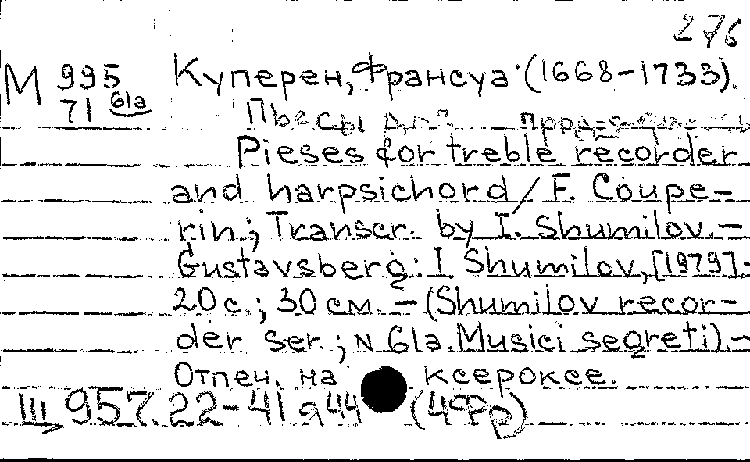 276
М 995 Куперен, Франсуа (1668-1733).
71 61a Пьесы для
Pieses for treble recorder
and harpsichord / F. Coupe-
rin; Transcr. by I. Shumilov. -
Gustavsberg: I Shumilov, [1979]. -
20 с.; 30 см. - (Shumilov recor-
der ser.; N 61a. Musici segreti). -
Отпеч. на ксероксе.
Ш 957.22-41 я44 (4Фр)